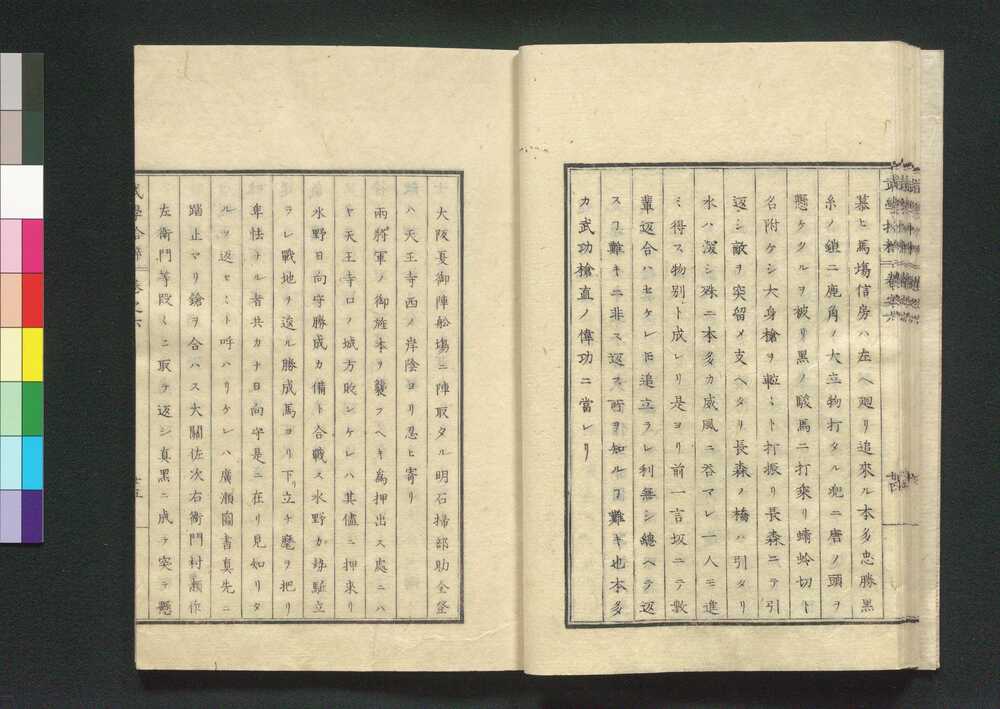 慕ヒ馬塲信房ハ左ヘ廻リ追來ル本多忠勝黒
糸ノ鎧ニ鹿角ノ大立物打タル兜ニ唐ノ頭ヲ
懸ケタルヲ被リ黒ノ駿馬ニ打乘リ蜻蛉切ト
名附ケシ大身槍ヲ輕々ト打振リ長森ニテ引
返シ敵ヲ突留メ支ヘタリ長森ノ橋ハ引タリ
水ハ深シ殊ニ本多カ威風ニ呑マレ一人モ進
ミ得ス物別ト成レリ是ヨリ前一言坂ニテ敷
輩返合ハセケレ𪜈追立ラレ利無シ總ヘテ返
スヿ難キニ非ス返ス所ヲ知ルヿ難キ也本多
カ武功槍直ノ偉功ニ當レリ
大阪夏御陣舩塲ニ陣取タル明石掃部助全登
ハ天王寺西ノ岸陰ヨリ忍ヒ寄リ
兩將軍ノ御旌本ヲ襲フヘキ為押出ス處ニハ
ヤ天王寺口ノ城方敗シケレハ其儘ニ押来リ
水野日向守勝成カ備ト合戦ス水野カ勢駈立
ラレ戰地ヲ逃ル勝成馬ヨリ下リ立チ麾ヲ把リ
卑怯ナル者共カナ日向守是ニ在リ見知リタ
ルソ返セ〻ト呼ハリケレハ廣瀬圖書真先ニ
踏止マリ鎗ヲ合ハス大關佐次右衛門村瀬作
左衛門等段々ニ取テ返シ真黒ニ成テ突テ懸
卷之六
廿五